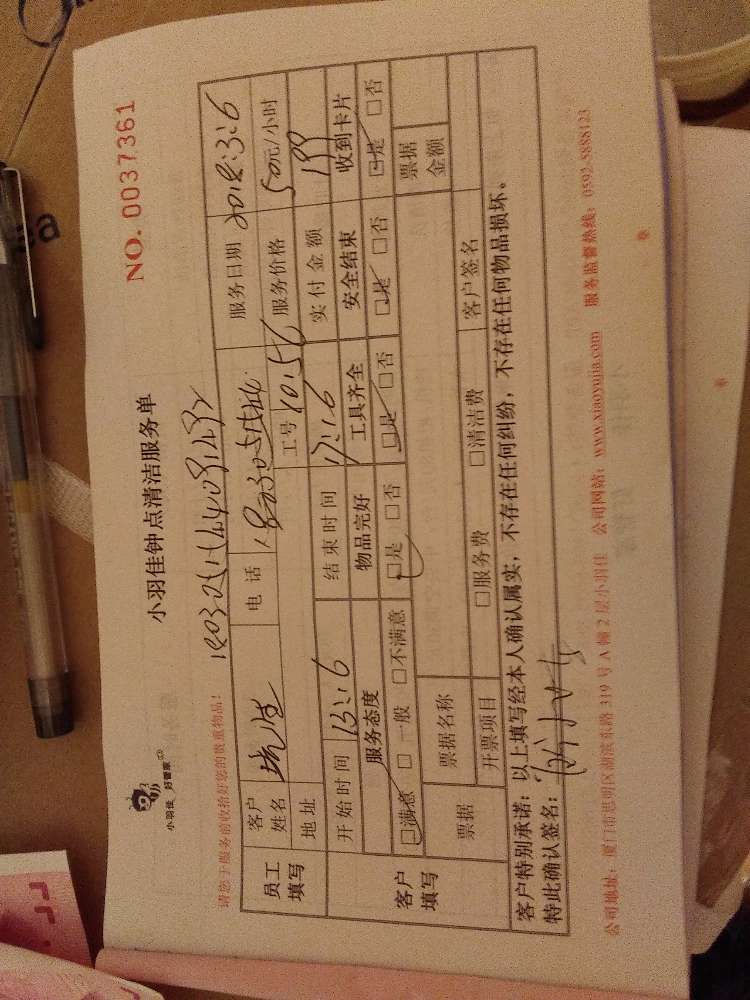 小羽佳 好管家
小羽佳钟点清洁服务单
NO. 0037361
请您于服务前收拾好您的贵重物品!
员工填写
客户姓名
电话
服务日期 2018:3:6
地址
工号
服务价格 50元/小时
客户填写
开始时间 13:16
结束时间 17:16
实付金额 199
服务态度 物品完好 工具齐全 安全结束 收到卡片
□满意 □一般 □不满意 □是 □否 □是 □否 □是 □否 □是 □否
票据 票据名称 票据金额
开票项目 □服务费 □清洁费 客户签名
客户特别承诺:以上填写经本人确认属实,不存在任何纠纷,不存在任何物品损坏。
特此确认签名:
公司地址:厦门市思明区湖滨东路 319 号 A 幢 2 层小羽佳 公司网站:www.xiaoyujia.com 服务监督热线:0592-5888123